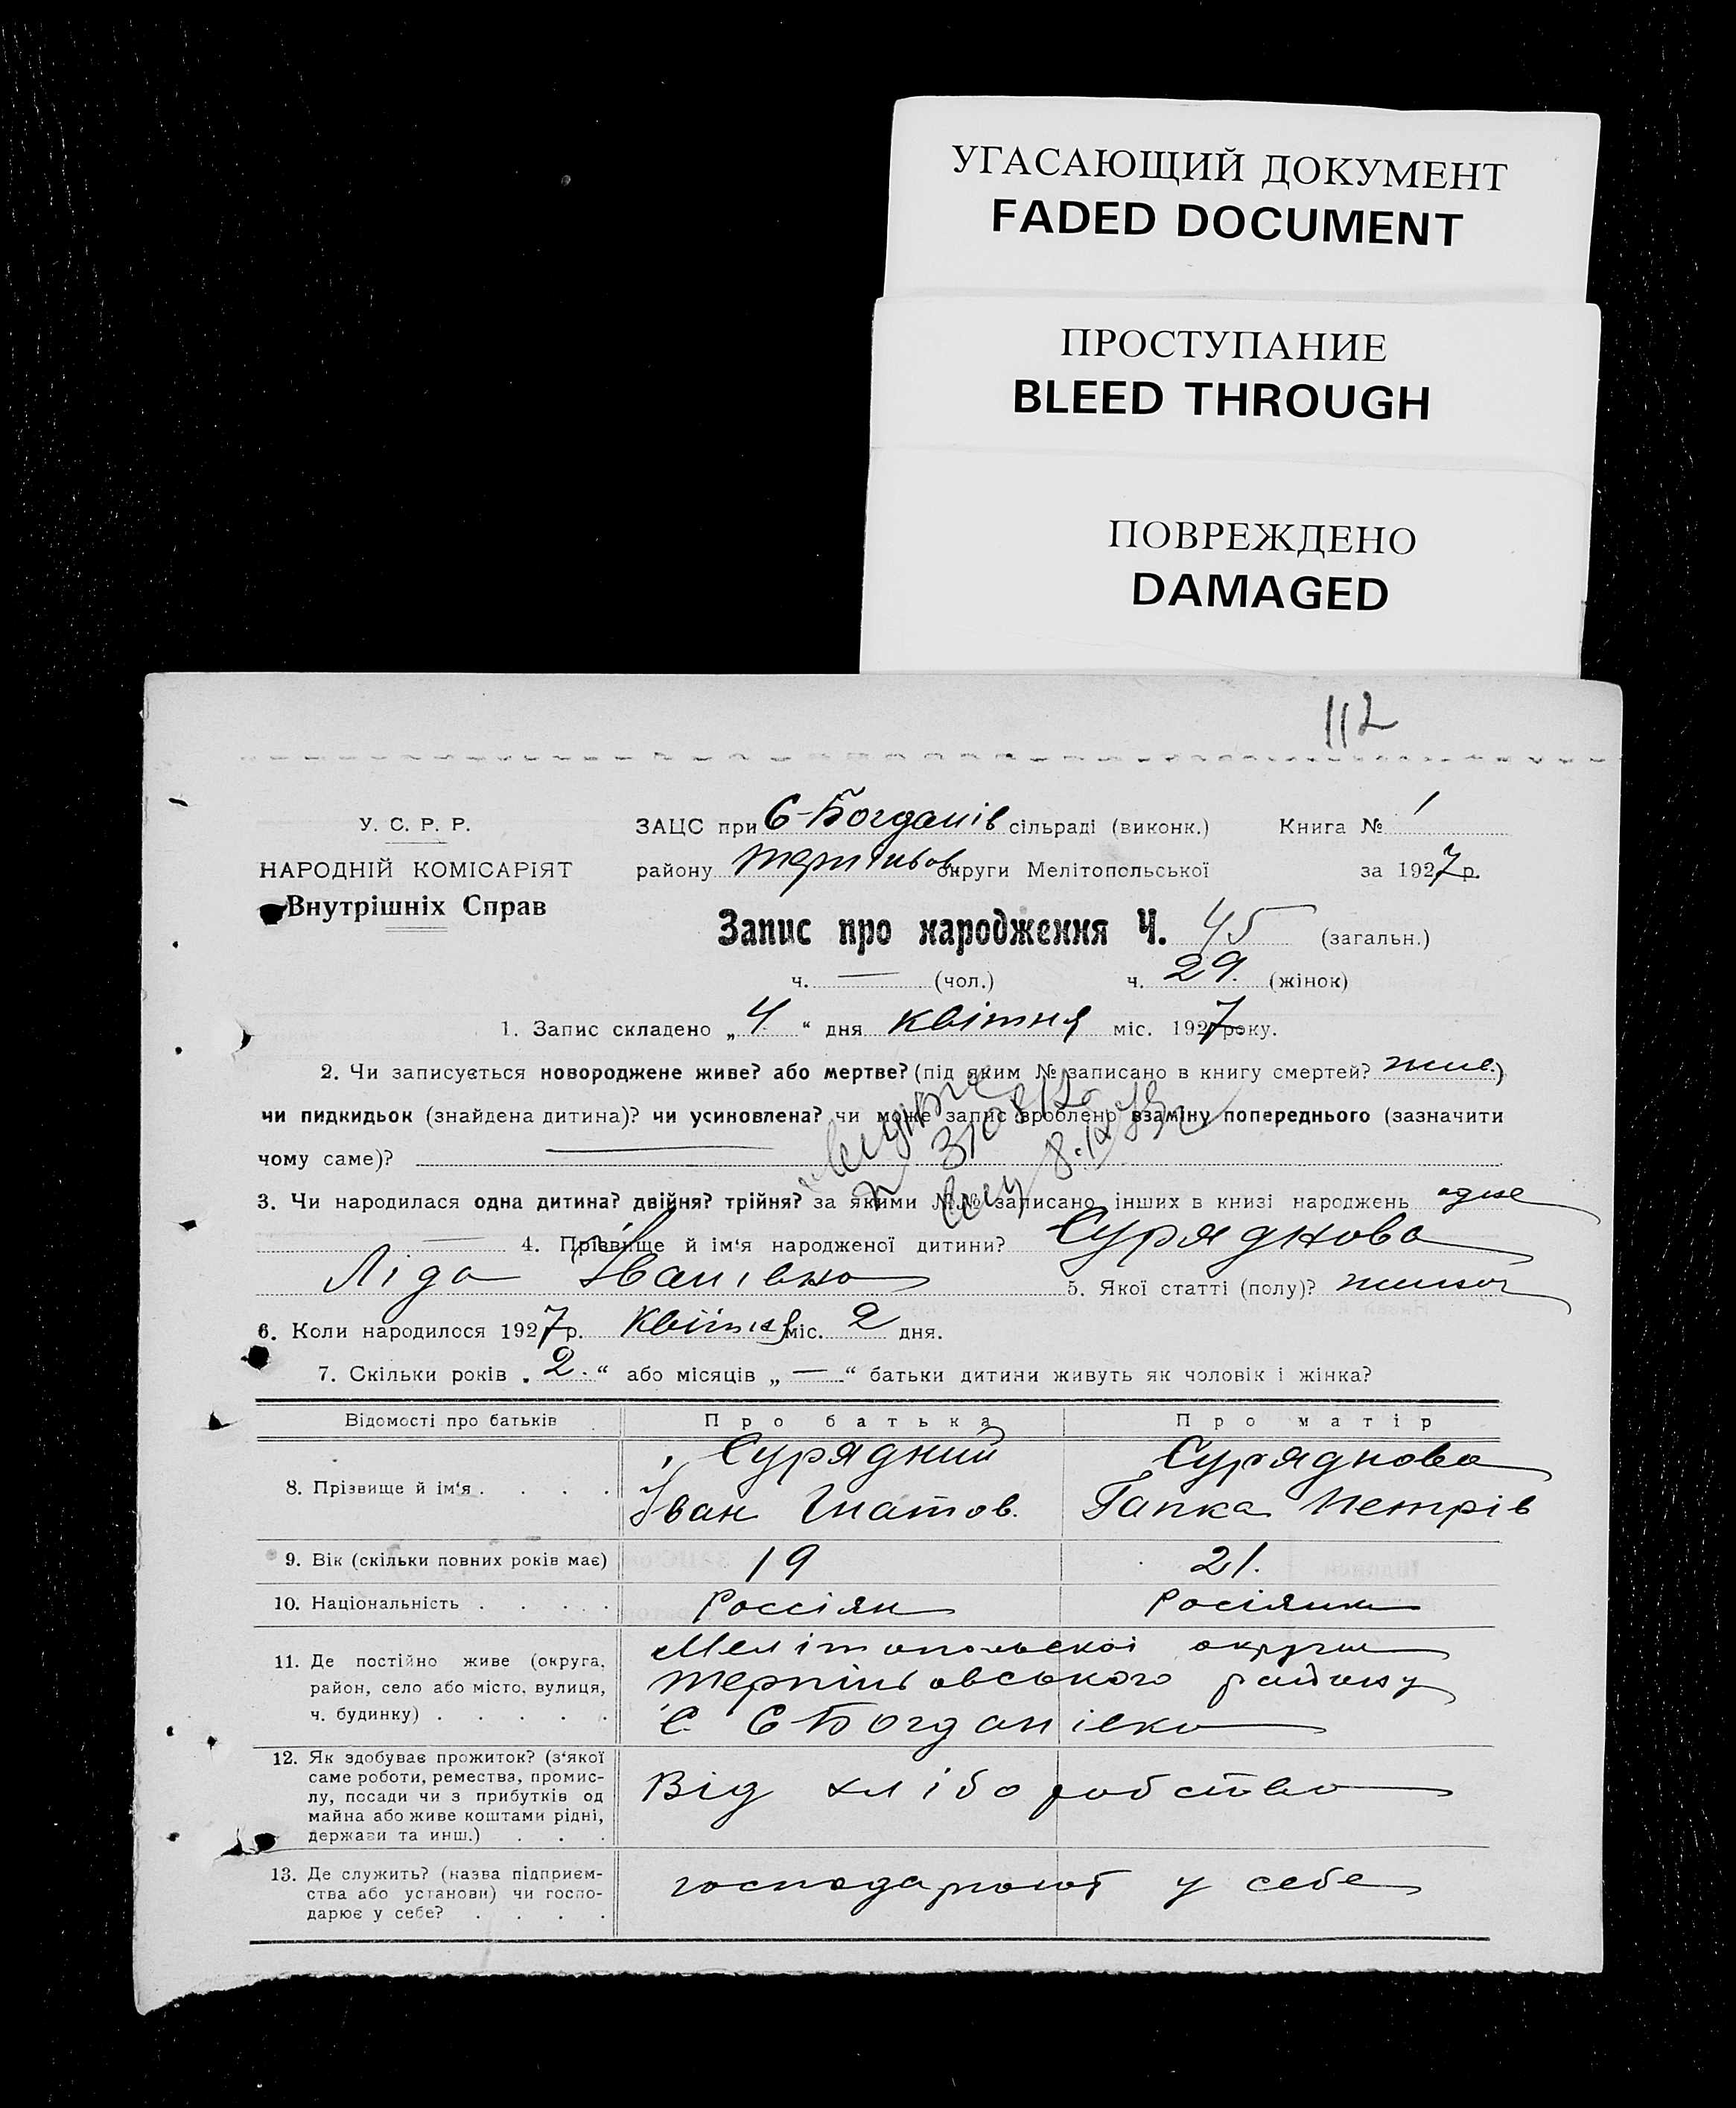 УГАСАЮЩИЙ ДОКУМЕНТ
FADED DOCUMENT
ПРОСТУПАНИЕ
BLEED THROUGH
ПОВРЕЖДЕНО
DAMAGED
112
У. С. Р. Р.
НАРОДНІЙ КОМІСАРІЯТ
Внутрішніх Справ
ЗАЦС при Є-Богданів сільраді (виконк.) Книга № 1
району округи Мелітопольської за 1927 р.
Запис про народження Ч. 45 (загальн.)
ч. — (чол.) ч. 29. (жінок)
1. Запис складено „ 4 “ дня квітня міс. 1927 року.
2. Чи записується новороджене живе? або мертве? (під яким № записано в книгу смертей? живе.)
чи пидкидьок (знайдена дитина)? чи усиновлена? чи може запис зроблено взаміну попереднього (зазначити
чому саме)? —
3. Чи народилася одна дитина? двійня? трійня? за якими №№ записано інших в книзі народжень одне
— 4. Прізвище й ім‘я народженої дитини? Суряднова
Ліда Іванівна 5. Якої статті (полу)?
6. Коли народилося 1927 р. Квітня міс. 2 дня.
7. Скільки років „ 2. “ або місяців „ — “ батьки дитини живуть як чоловік і жінка?
Відомості про батьків Про батька Про матір
8. Прізвище й ім‘я . . . . . Сурядний Суряднова
Іван Гнатов. Гапка Петрів
9. Вік (скільки повних років має) 19 21.
10. Національність . . . . . Россіян Росіянка
11. Де постійно живе (округа, район, село або місто, вулиця, ч. будинку) . . . . . Мелітопольскоі округи
района
с. Є Богданівка
12. Як здобуває прожиток? (з‘якої саме роботи, ремества, промислу, посади чи з прибутків од майна або живе коштами рідні, держави та инш.) . . . Від хліборобства
13. Де служить? (назва підприємства або установи) чи господарює у себе? . . . . господарюют у себе